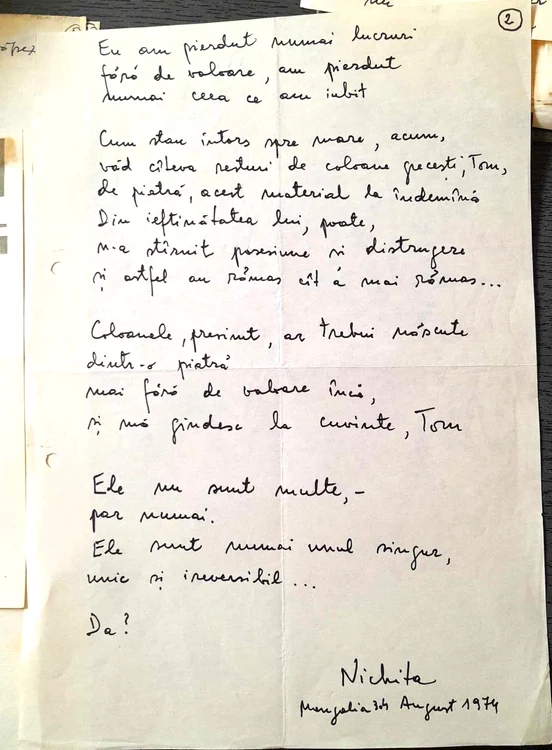 2
Eu am pierdut numai lucruri
fără de valoare, am pierdut
numai ceea ce am iubit
Cum stau întors spre mare, acum,
văd cîteva resturi de coloane grecești, Tom,
de piatră, acest material la îndemînă
Din ieftinătatea lui, poate,
n-a stîrnit posesiune și distrugere
și astfel au rămas cît a mai rămas...
Coloanele, presimt, ar trebui născute
dintr-o piatră
mai fără de valoare încă,
și mă gîndesc la cuvinte, Tom
Ele nu sunt multe, -
par numai.
Ele sunt numai unul singur,
unic și ireversibil...
Da?
Nichita
Mangalia August 1974